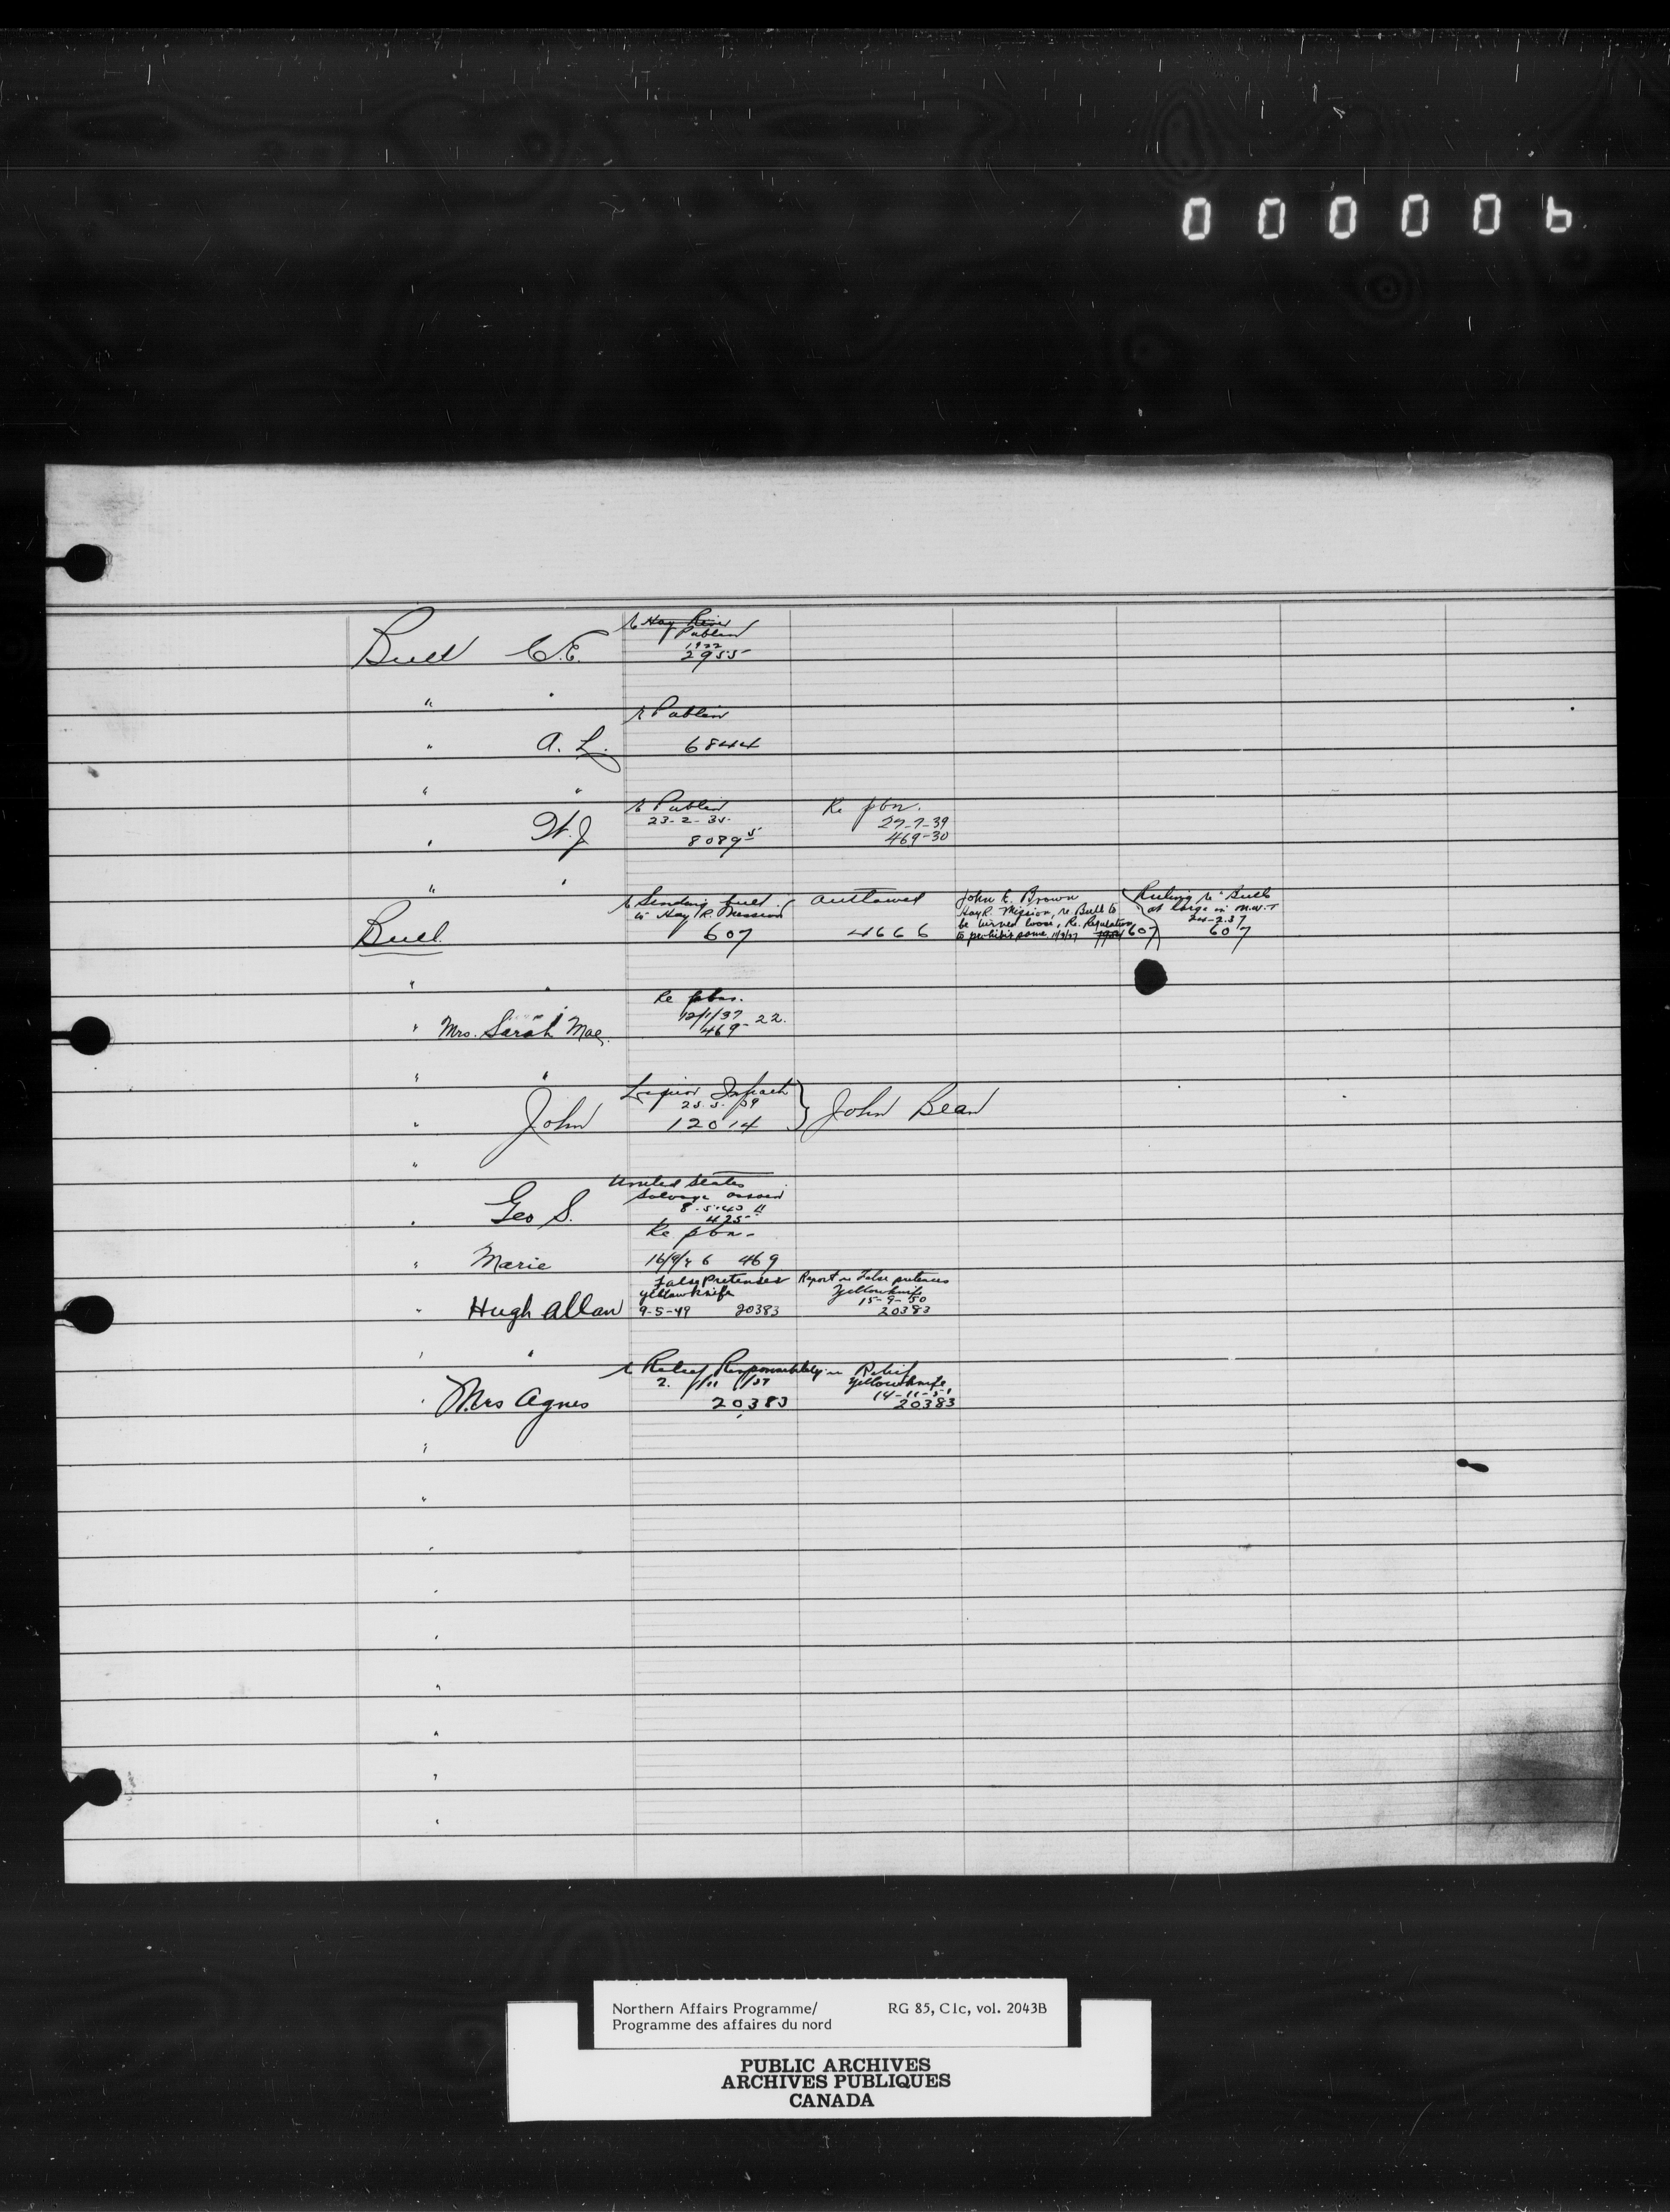 000006
Bull C.E.
re Hay River
Publin
1922
2955
" "
" A. L.
re Publin
6844
" "
" W. J.
re Publin
23-2-35.
8089
Re pbn.
27-7-39
469-30
" "
Bull
re Sending bull
to Hay R. Mission
607
Outlawed
4666
John E. Brown
Hay R. Mission, re Bulls to
be turned loose, Re. Regulation
to prohibit same 607
Ruling re Bulls
at large in N.W.T
24-2-37
607
" "
" Mrs. Sarah Mae
Re pbn.
12/1/37
469-22.
" "
" John
Liquor
12014
John Bean
"
" Geo S.
United States
Salvage
425
" Marie
Re pbn.
469
" Hugh Allan
False Pretenses
Yellowknife
9-5-49 20383
Report re False pretences
Yellowknife
15-9-50
20383
" "
" Mrs Agnes
re Relief Responsibility
20383
re Relief
Yellowknife
14-11-51
20383
Northern Affairs Programme/
Programme des affaires du nord
RG 85, C1c, vol. 2043B
PUBLIC ARCHIVES
ARCHIVES PUBLIQUES
CANADA